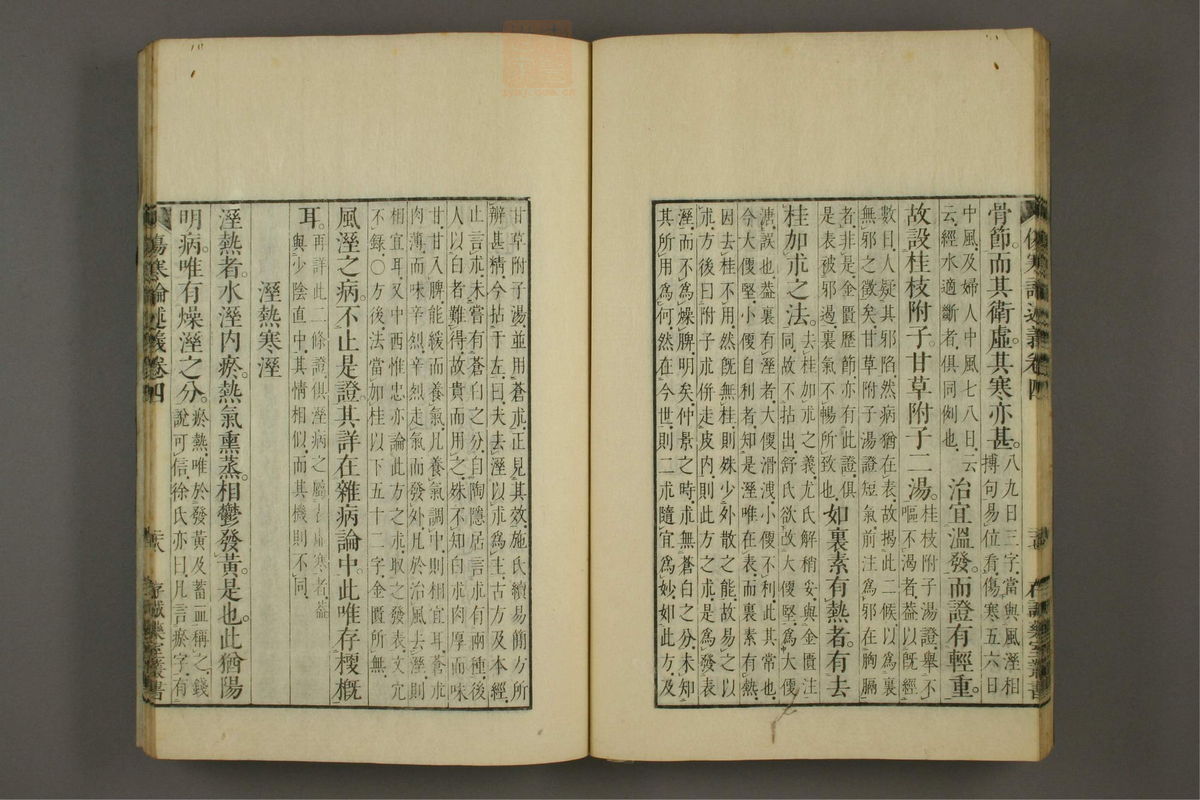 骨節。而其衛虛。其寒亦甚。八九日三字。當與風溼相
搏句易位看。傷寒五六日
中風。及婦人中風七八日。云
云。經水適斷者。俱同例也。治宜溫發。而證有輕重。
故設桂枝附子。甘草附子二湯。桂枝附子湯證。舉不
嘔不渴者。蓋以既經
數目。人疑其邪陷。然病猶在表。故揭此二候。以為裏
無邪之徵矣。甘草附子湯證。短氣。前注為邪在胸膈
者非。是金匱歷節亦有此證。俱
是表被邪遏。裏氣不暢所致也。如裏素有熱者。有去
桂加朮之法。去桂加朮之義。尤氏解稍妥。與金匱注
同。故不拈出。舒氏欲改大便堅。為大便
溏。誤也。蓋裏有溼者。大便滑洩。小便不利。此其常也。
今大便堅。小便自利者。知是溼唯在表。而裏素有熱。
因去桂不用。然既無桂。則殊少外散之能。故易之以
朮。方後曰。附子朮併走皮內。則此方之朮。是為發表
溼。而不為燥脾。明矣。仲景之時。朮無蒼白之分。未知
其所用為何。然在今世。則二朮隨宜為妙。如此方及
傷寒論述義卷四
存誠藥室叢書
甘草附子湯。並用蒼朮。正見其效。施氏續易簡方。所
辨甚精。今拈于左。曰。夫去溼以朮為主。古方及本經。
止言朮。未嘗有蒼白之分。自陶隱居言朮有兩種。後
人以白者難得。故貴而用之。殊不知白朮肉厚而味
甘。甘入脾。能緩而養氣。凡養氣調中。則相宜耳。蒼朮
肉薄而味辛烈。辛烈走氣而發外。凡於治風去溼。則
相宜耳。又中西惟忠亦論此方之朮。取之發表。文冗
不錄。〇方後。法當加桂以下五十二字。金匱所無。
風溼之病。不止是證。其詳在雜病論中。此唯存梗概
耳。再詳此二條證。俱溼病之屬表虛寒者。蓋
與少陰直中。其情相似。而其機則不同。
溼熱寒溼
溼熱者。水溼內瘀。熱氣熏蒸。相鬱發黃。是也。此猶陽
明病唯有燥溼之分。瘀熱。唯於發黃及蓄血稱之。錢
說可信。徐氏亦曰。凡言瘀字。有
傷寒論述義卷四
存誠藥室叢書